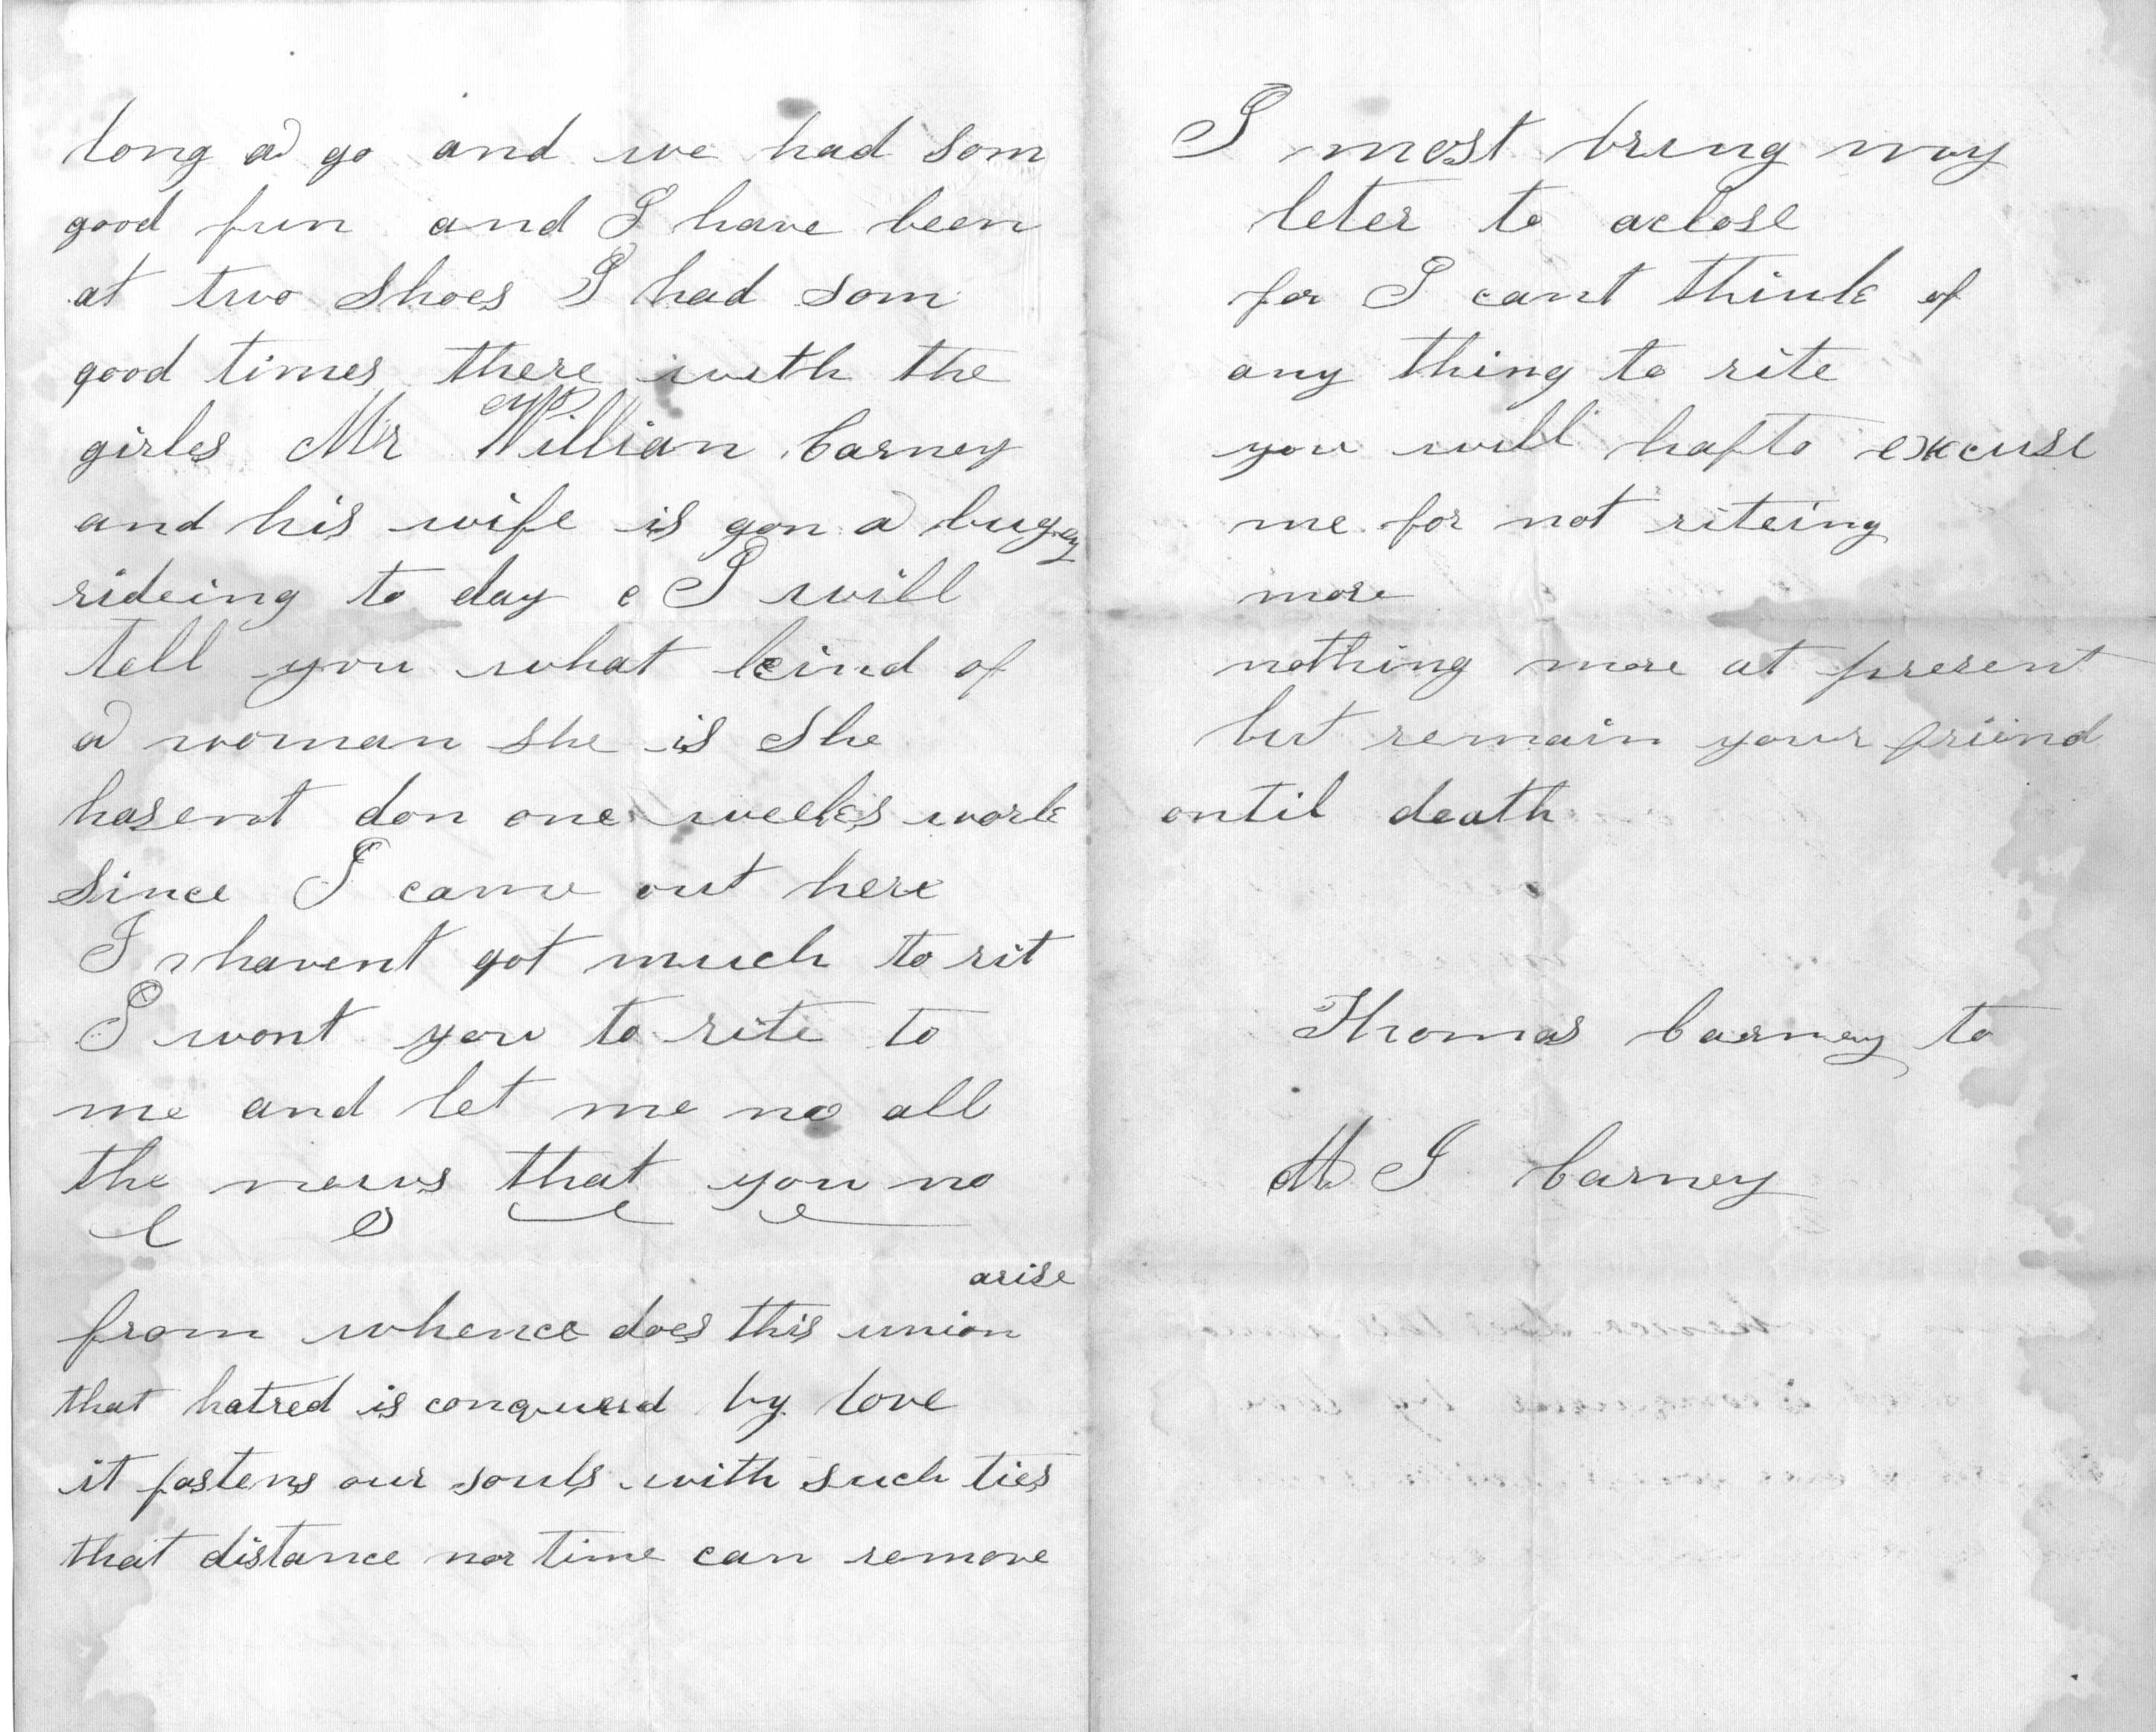 long a go and we had som
good fun and I have been
at two shoes I had som
good times there with the
girles Mr Willian Carney
and his wife is gon a bugey
rideing to day I will
tell you what kind of
a woman she is she
hasent don one weeks work
since I came out here
I havent got much to rit
I wont you to rite to
me and let me no all
the news that you no
arise
from whence does this union
that hatred is conquerd by love
it fastens our souls with such ties
that distance nor time can remove
I most bring my
leter to aclose
for I cant think of
any thing to rite
you will hafto excuse
me for not riteing
more
nothing more at present
but remain your friend
ontil death
Thomas Carney to
M J Carney